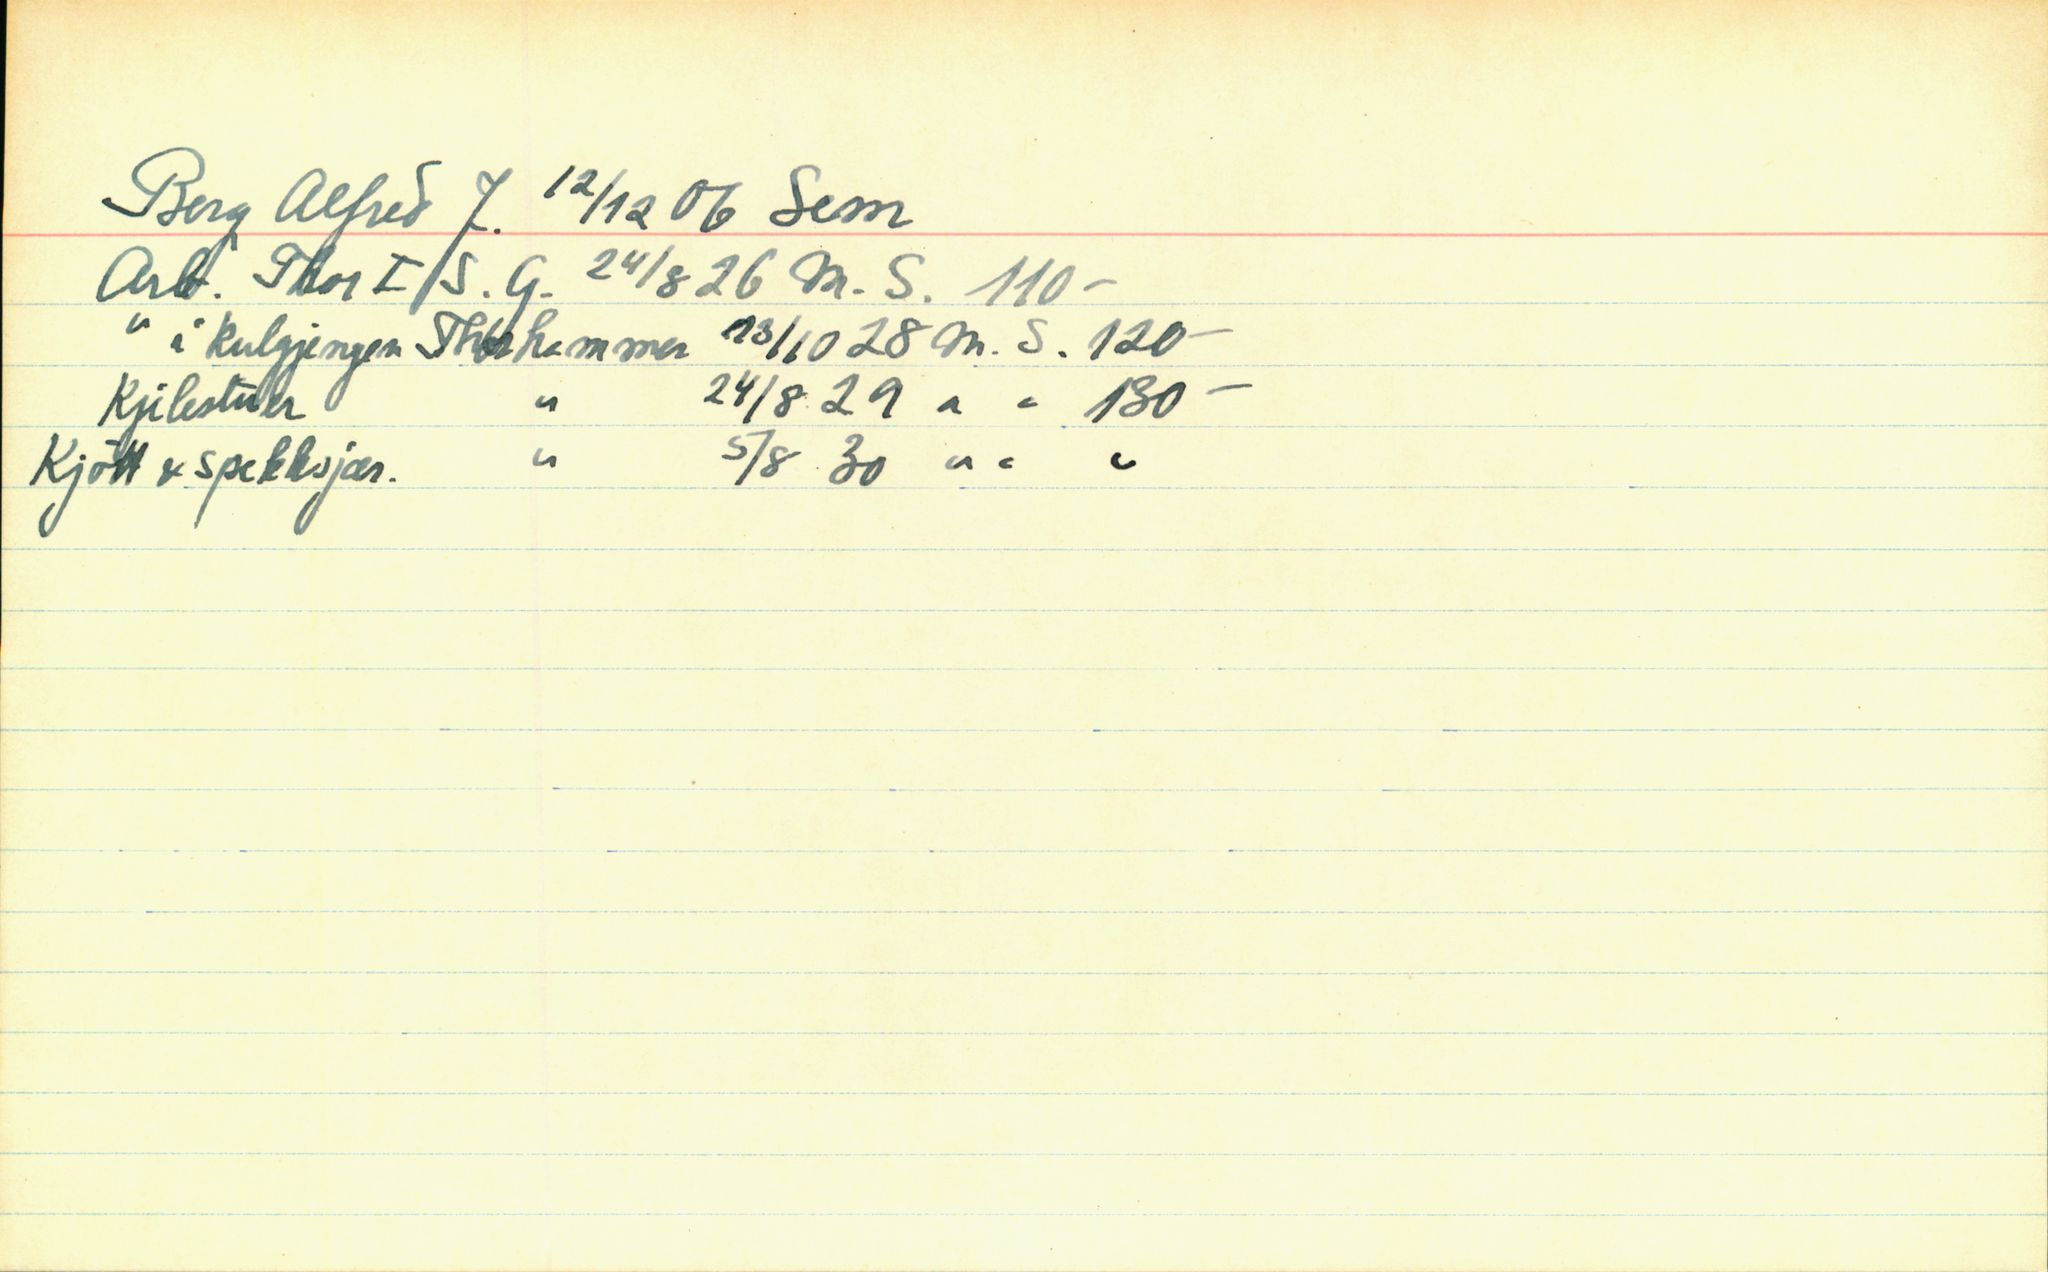 Berg Alfred J. 12/12 06 Sem
Arb. Thor I/S. G. 24/8 26 M. S. 110-
" i kulgjengen Thorhammer 13/10 28 M. S. 120-
Kjilestuer " 24/8 29 " " 130-
Kjött & spekksjær. " 5/8 30 " " "